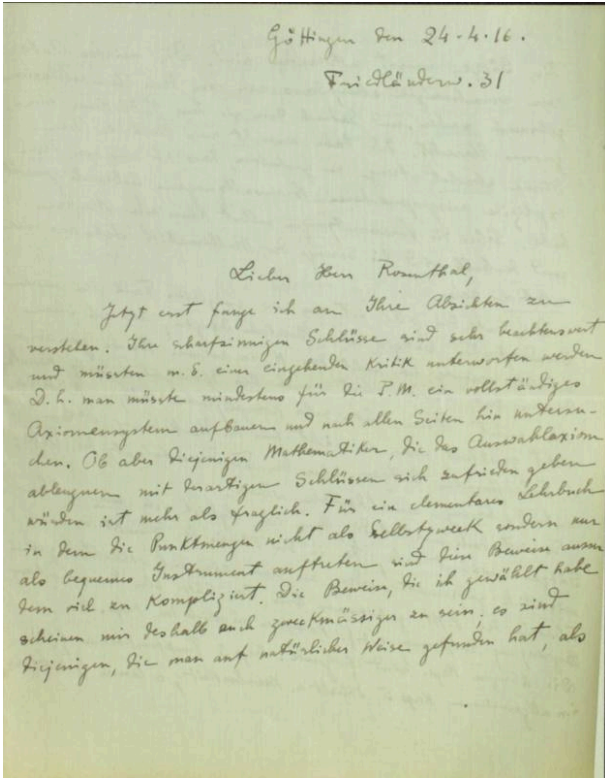 Göttingen den 24.4.16.
Friedländerw. 31
Lieber Herr Rosenthal,
Jetzt erst fange ich an Ihre Absichten zu
verstehen. Ihre scharfsinnigen Schlüsse sind sehr beachtenswert
und müssten m. E. einer eingehenden Kritik unterworfen werden
D.h. man müsste mindestens für die P.M. ein vollständiges
Axiomensystem aufbauen und nach allen Seiten hin untersu-
chen. Ob aber diejenigen Mathematiker, die das Auswahlaxiom
ableugnen mit derartigen Schlüssen sich zufrieden geben
würden ist mehr als fraglich. Für ein elementares Lehrbuch
in dem die Punktmengen nicht als Selbstzweck sondern nur
als bequemes Instrument auftreten sind diese Beweise ausser
dem viel zu kompliziert. Die Beweise, die ich gewählt habe
scheinen mir deshalb auch zweckmässiger zu sein; es sind
diejenigen, die man auf natürlicher Weise gefunden hat, als